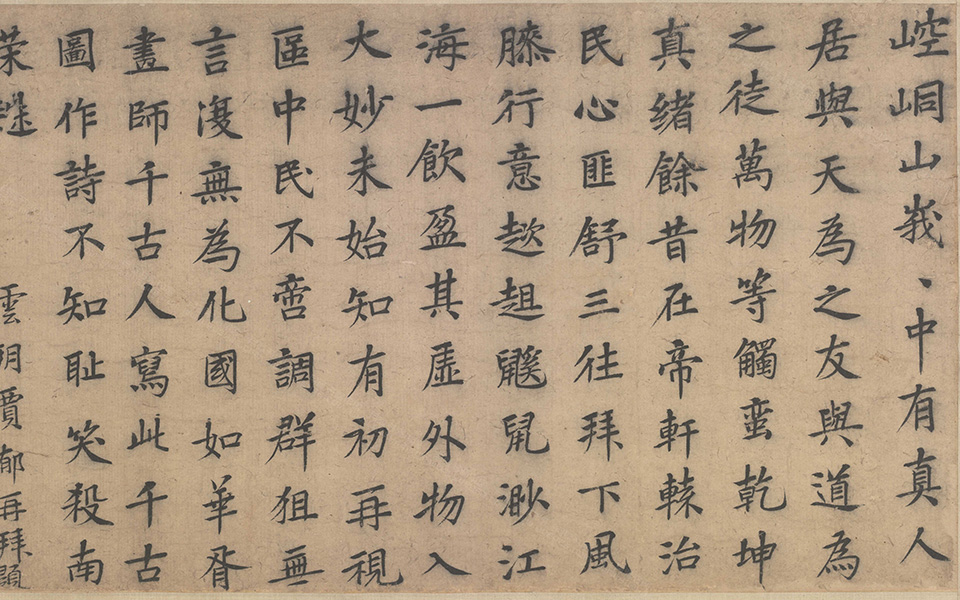 崆峒山峩、中有真人
居與天為之友與道為
之徒萬物等觸蛮乾坤
真緒餘昔在帝軒轅治
民心匪舒三往拜下風
膝行意趑趄鼷鼠渺江
海一飲盈其虛外物入
大妙未始知有初再視
區中民不啻調群狙無
言復無為化國如華胥
畫師千古人寫此千古
圖作詩不知恥笑殺南
榮趎
雲朔賈郁再拜題